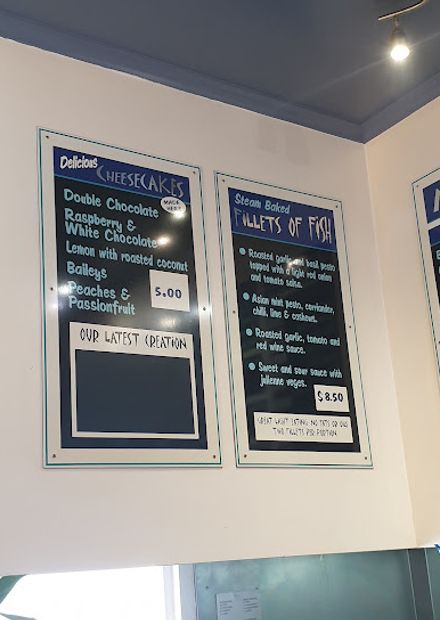 Delicious
CHEESECAKES
MADE HERE
Double Chocolate
Raspberry &
White Chocolate
Lemon with roasted coconut
Baileys
Peaches &
Passionfruit
5.00
OUR LATEST CREATION
Steam Baked
FILLETS OF FISH
Roasted garlic and basil pesto
topped with a light red onion
and tomato salsa.
Asian mint pesto, corriander,
chilli, lime & cashews.
Roasted garlic, tomato and
red wine sauce.
Sweet and sour sauce with
julienne veges.
$8.50
GREAT LIGHT EATING NO FATS OR OILS
TWO FILLETS PER PORTION